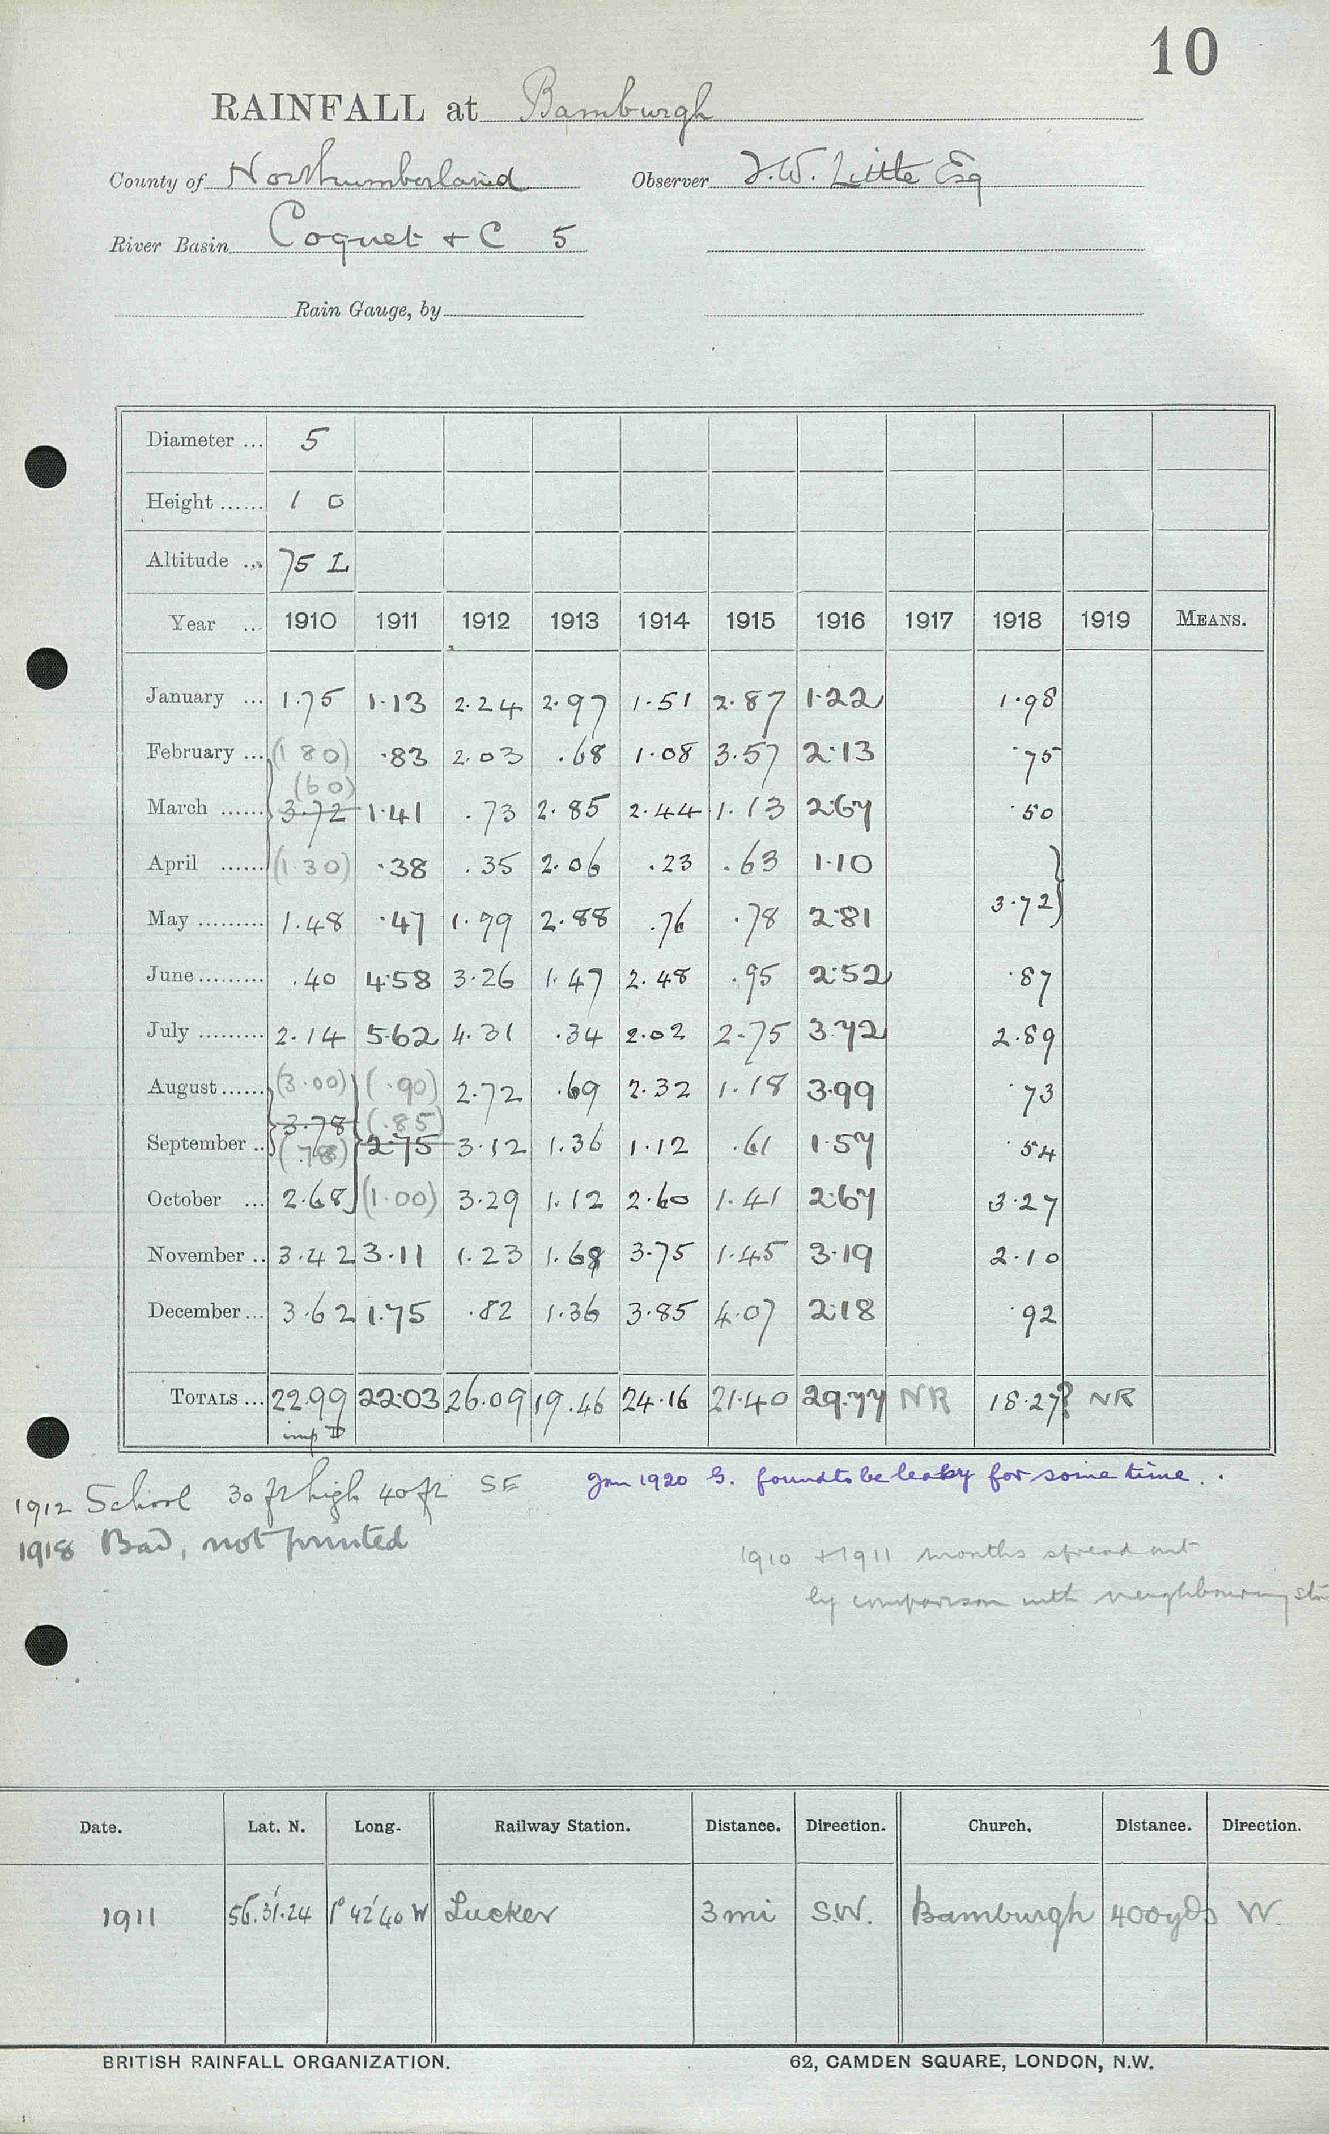 10
RAINFALL at Bamburgh
County of Northumberland Observer J.W. Little Esq
River Basin Coquet + C 5
Rain Gauge, by
Diameter ... 5
Height ...... 1 0
Altitude ... 75 L
Year ... 1910 1911 1912 1913 1914 1915 1916 1917 1918 1919 MEANS.
January ... 1.75 1.13 2.24 2.97 1.51 2.87 1.22 1.98
February ... (1 80) .83 2.03 .68 1.08 3.57 2.13 .75
(60)
March ...... 3.72 1.41 .73 2.85 2.44 1.13 2.67 .50
April ...... (1.30) .38 .35 2.06 .23 .63 1.10
May ......... 1.48 .47 1.99 2.88 .76 .78 2.81 3.72
June ......... .40 4.58 3.26 1.47 2.48 .95 2.52 .87
July ......... 2.14 5.62 4.31 .34 2.02 2.75 3.72 2.89
August ...... (3.00) (.90) 2.72 .69 2.32 1.18 3.99 .73
3.78 (.85)
September .. (.78) 2.75 3.12 1.36 1.12 .61 1.57 .54
October ... 2.68 (1.00) 3.29 1.12 2.60 1.41 2.67 3.27
November .. 3.42 3.11 1.23 1.68 3.75 1.45 3.19 2.10
December ... 3.62 1.75 .82 1.36 3.85 4.07 2.18 .92
TOTALS ... 22.99 22.03 26.09 19.46 24.16 21.40 29.77 NR 18.27? NR
imp D
1912 School 30 ft high 40 ft SE
Jan 1920 G. found to be leaky for some time.
1918 Bad, not printed
1910 + 1911 months spread out
by comparison with neighbouring
Date. Lat. N. Long. Railway Station. Distance. Direction. Church. Distance. Direction.
1911 56.31'.24 1° 42' 40 W Lucker 3 mi S.W. Bamburgh 400 yds W.
BRITISH RAINFALL ORGANIZATION. 62, CAMDEN SQUARE, LONDON, N.W.